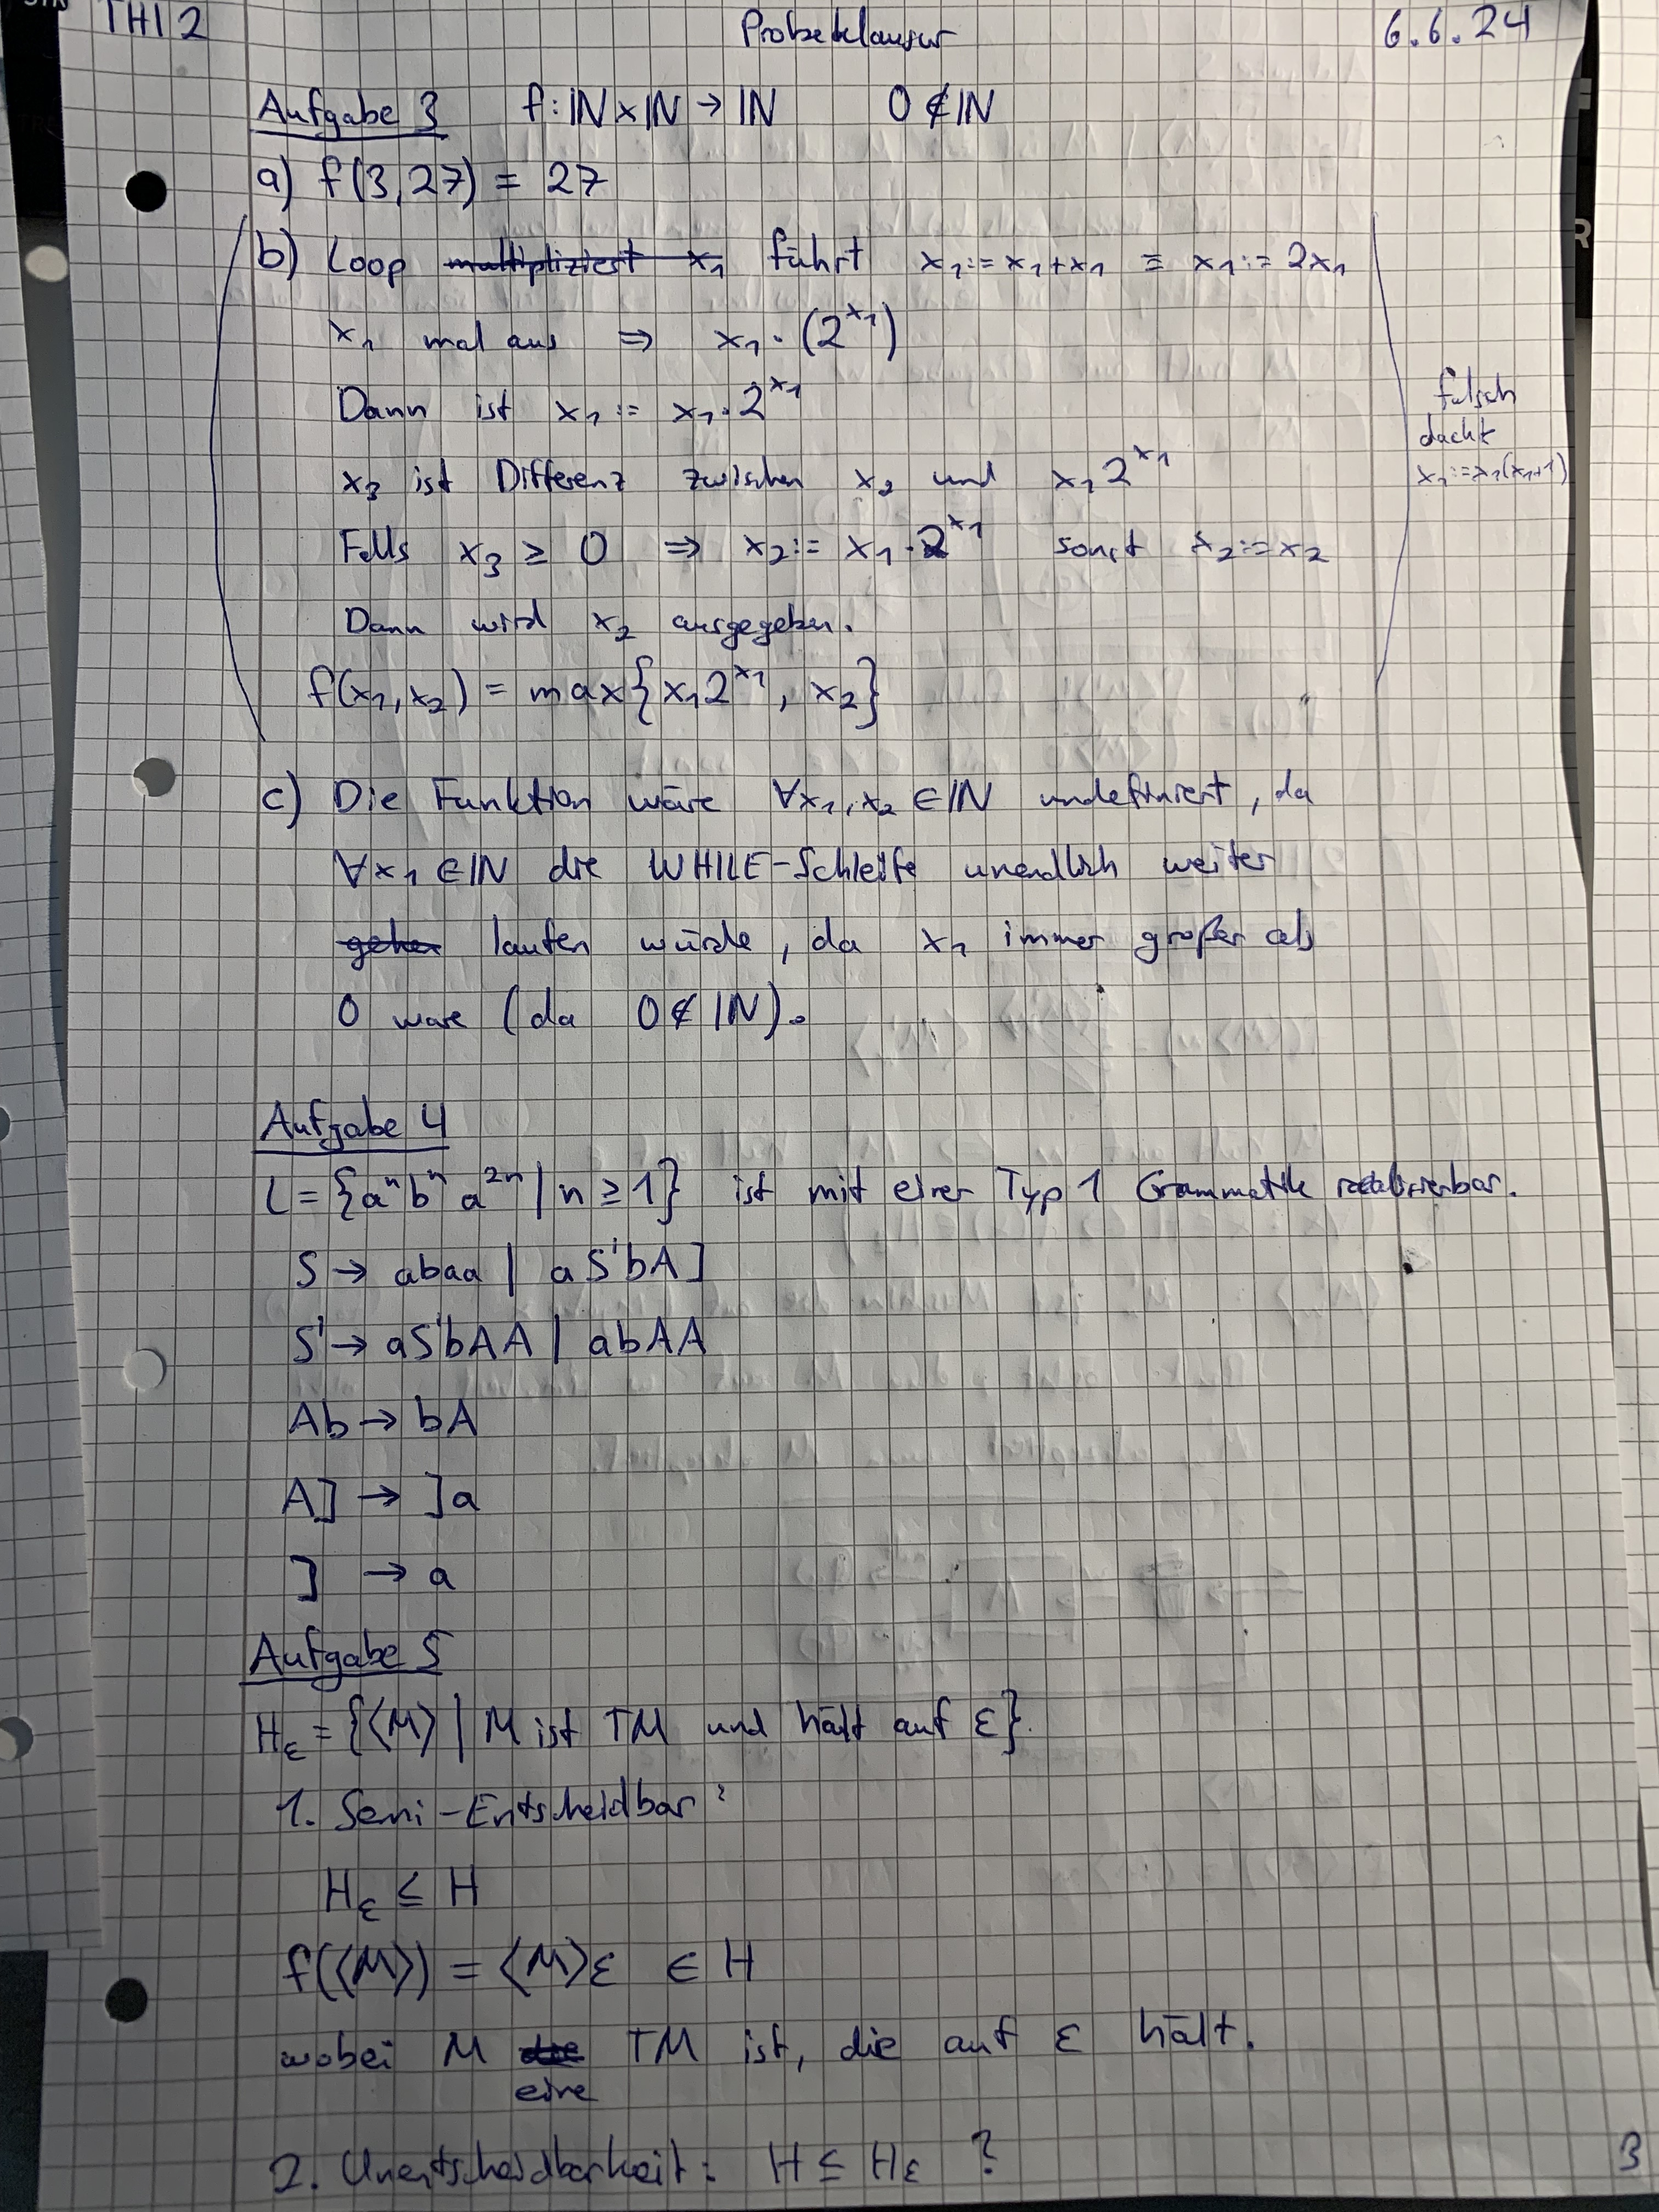 THI 2 Probeklausur 6.6.24
Aufgabe 3 f: ℕ×ℕ → ℕ 0 ∉ ℕ
a) f(3,27) = 27
b) Loop multipliziert x₁ führt x₁:= x₁+x₁ ≡ x₁:= 2x₁
x₁ mal aus ⇒ x₁·(2^x₁)
Dann ist x₁ := x₁·2^x₁
x₃ ist Differenz zwischen x₂ und x₁2^x₁
Falls x₃ ≥ 0 ⇒ x₂:= x₁·2^x₁ sonst x₂:=x₂
Dann wird x₂ ausgegeben.
f(x₁,x₂) = max{x₁2^x₁, x₂}
falsch
dacht
x₁:=x₁(x₁+1)
c) Die Funktion wäre ∀x₁,x₂ ∈ ℕ undefiniert, da
∀x₁ ∈ ℕ die WHILE-Schleife unendlich weiter
gehen laufen würde, da x₁ immer großer als
0 ware (da 0 ∉ ℕ).
Aufgabe 4
L = {aⁿbⁿa²ⁿ | n ≥ 1} ist mit einer Typ 1 Grammatik
S → abaa | aS'bA]
S' → aS'bAA | abAA
Ab → bA
A] → ]a
] → a
Aufgabe 5
H_ε = {⟨M⟩ | M ist TM und hält auf ε}.
1. Semi-Entscheidbar:
H_ε ≤ H
f(⟨M⟩) = ⟨M⟩ε ∈ H
wobei M TM ist, die auf ε hält.
eine
2. Unentscheidbarkeit: H ≤ H_ε ?
3